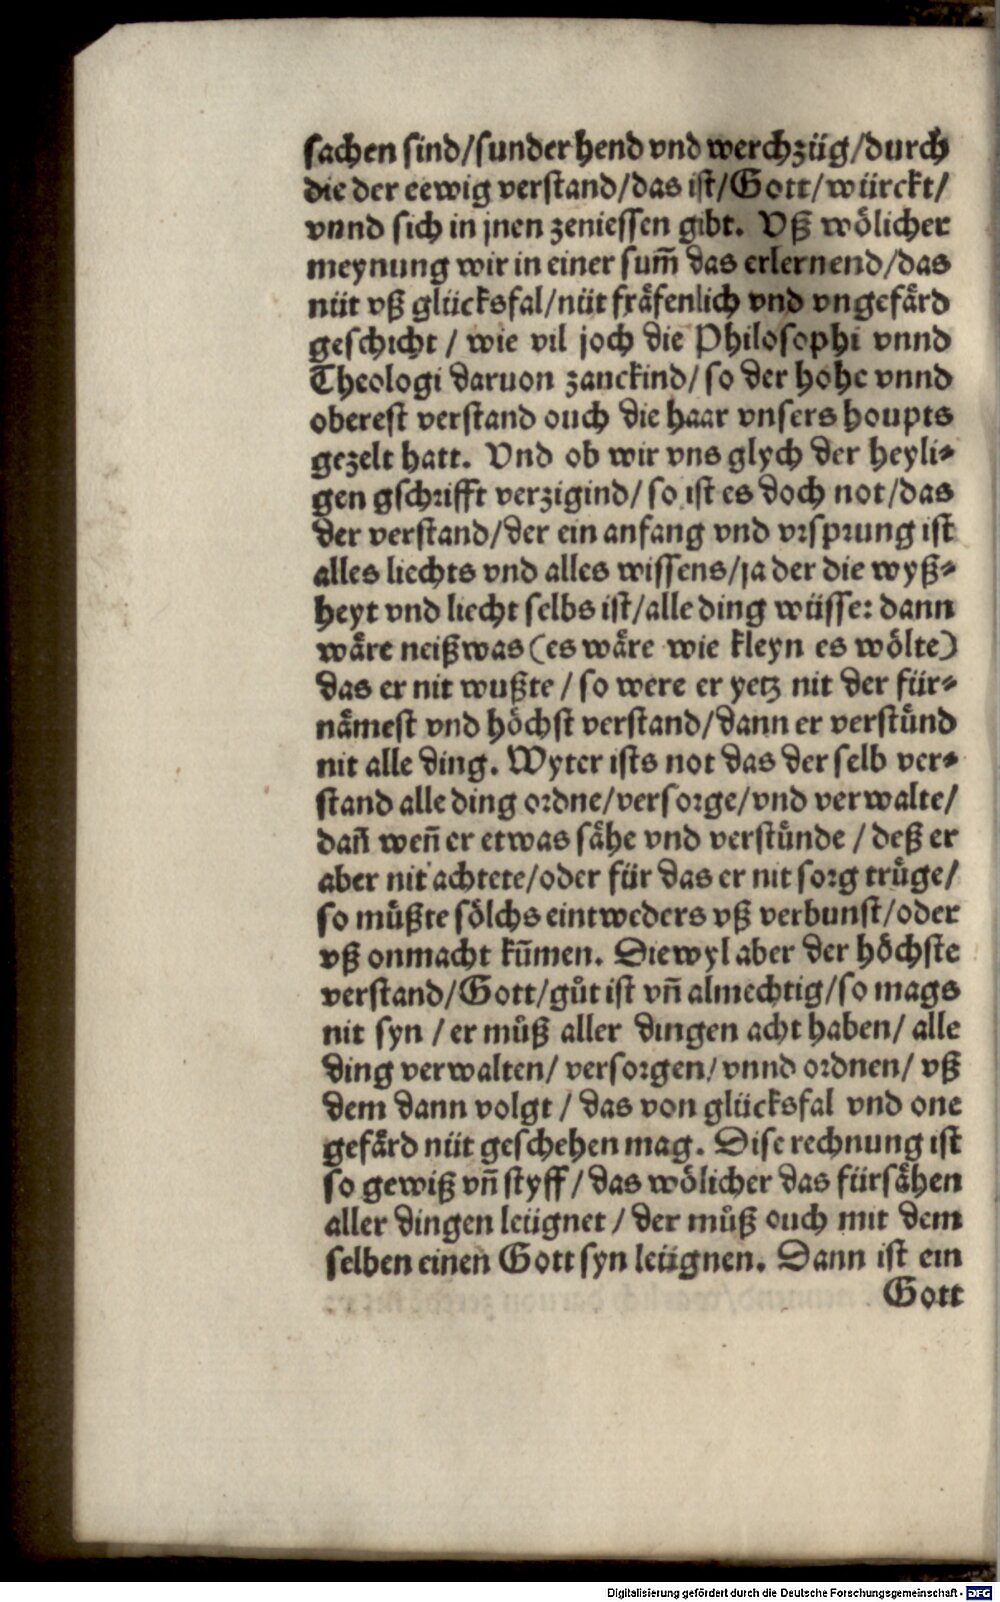 sachen sind/sunder hend vnd werchzüg/durch
die der eewig verstand/das ist/Gott/würckt/
vnnd sich in jnen zeniessen gibt. Vß wölicher
meynung wir in einer sum̄ das erlernend/das
nüt vß glücksfal/nüt fräfenlich vnd vngefärd
geschicht / wie vil joch die Philosophi vnnd
Theologi daruon zanckind/ so der hohe vnnd
oberest verstand ouch die haar vnsers houpts
gezelt hatt. Vnd ob wir vns glych der heyli⸗
gen gschrifft verzigind/ so ist es doch not/das
der verstand/der ein anfang vnd vrsprung ist
alles liechts vnd alles wissens/ja der die wyß⸗
heyt vnd liecht selbs ist/alle ding wüsse: dann
wäre neißwas (es wäre wie kleyn es wölte)
das er nit wußte / so were er yetz nit der für⸗
nämest vnd höchst verstand/dann er verstůnd
nit alle ding. Wyter ists not das der selb ver⸗
stand alle ding ordne/versorge/vnd verwalte/
dañ weñ er etwas sähe vnd verstünde / deß er
aber nit achtete/oder für das er nit sorg trüge/
so müßte sölchs eintweders vß verbunst/oder
vß onmacht kum̄en. Diewyl aber der höchste
verstand/Gott/gůt ist vñ almechtig/so mags
nit syn / er můß aller dingen acht haben/ alle
ding verwalten/ versorgen/ vnnd ordnen/ vß
dem dann volgt / das von glücksfal vnd one
gefärd nüt geschehen mag. Dise rechnung ist
so gewiß vñ styff / das wölicher das fürsähen
aller dingen leügnet / der můß ouch mit dem
selben einen Gott syn leügnen. Dann ist ein
Gott
Digitalisierung gefördert durch die Deutsche Forschungsgemeinschaft - DFG